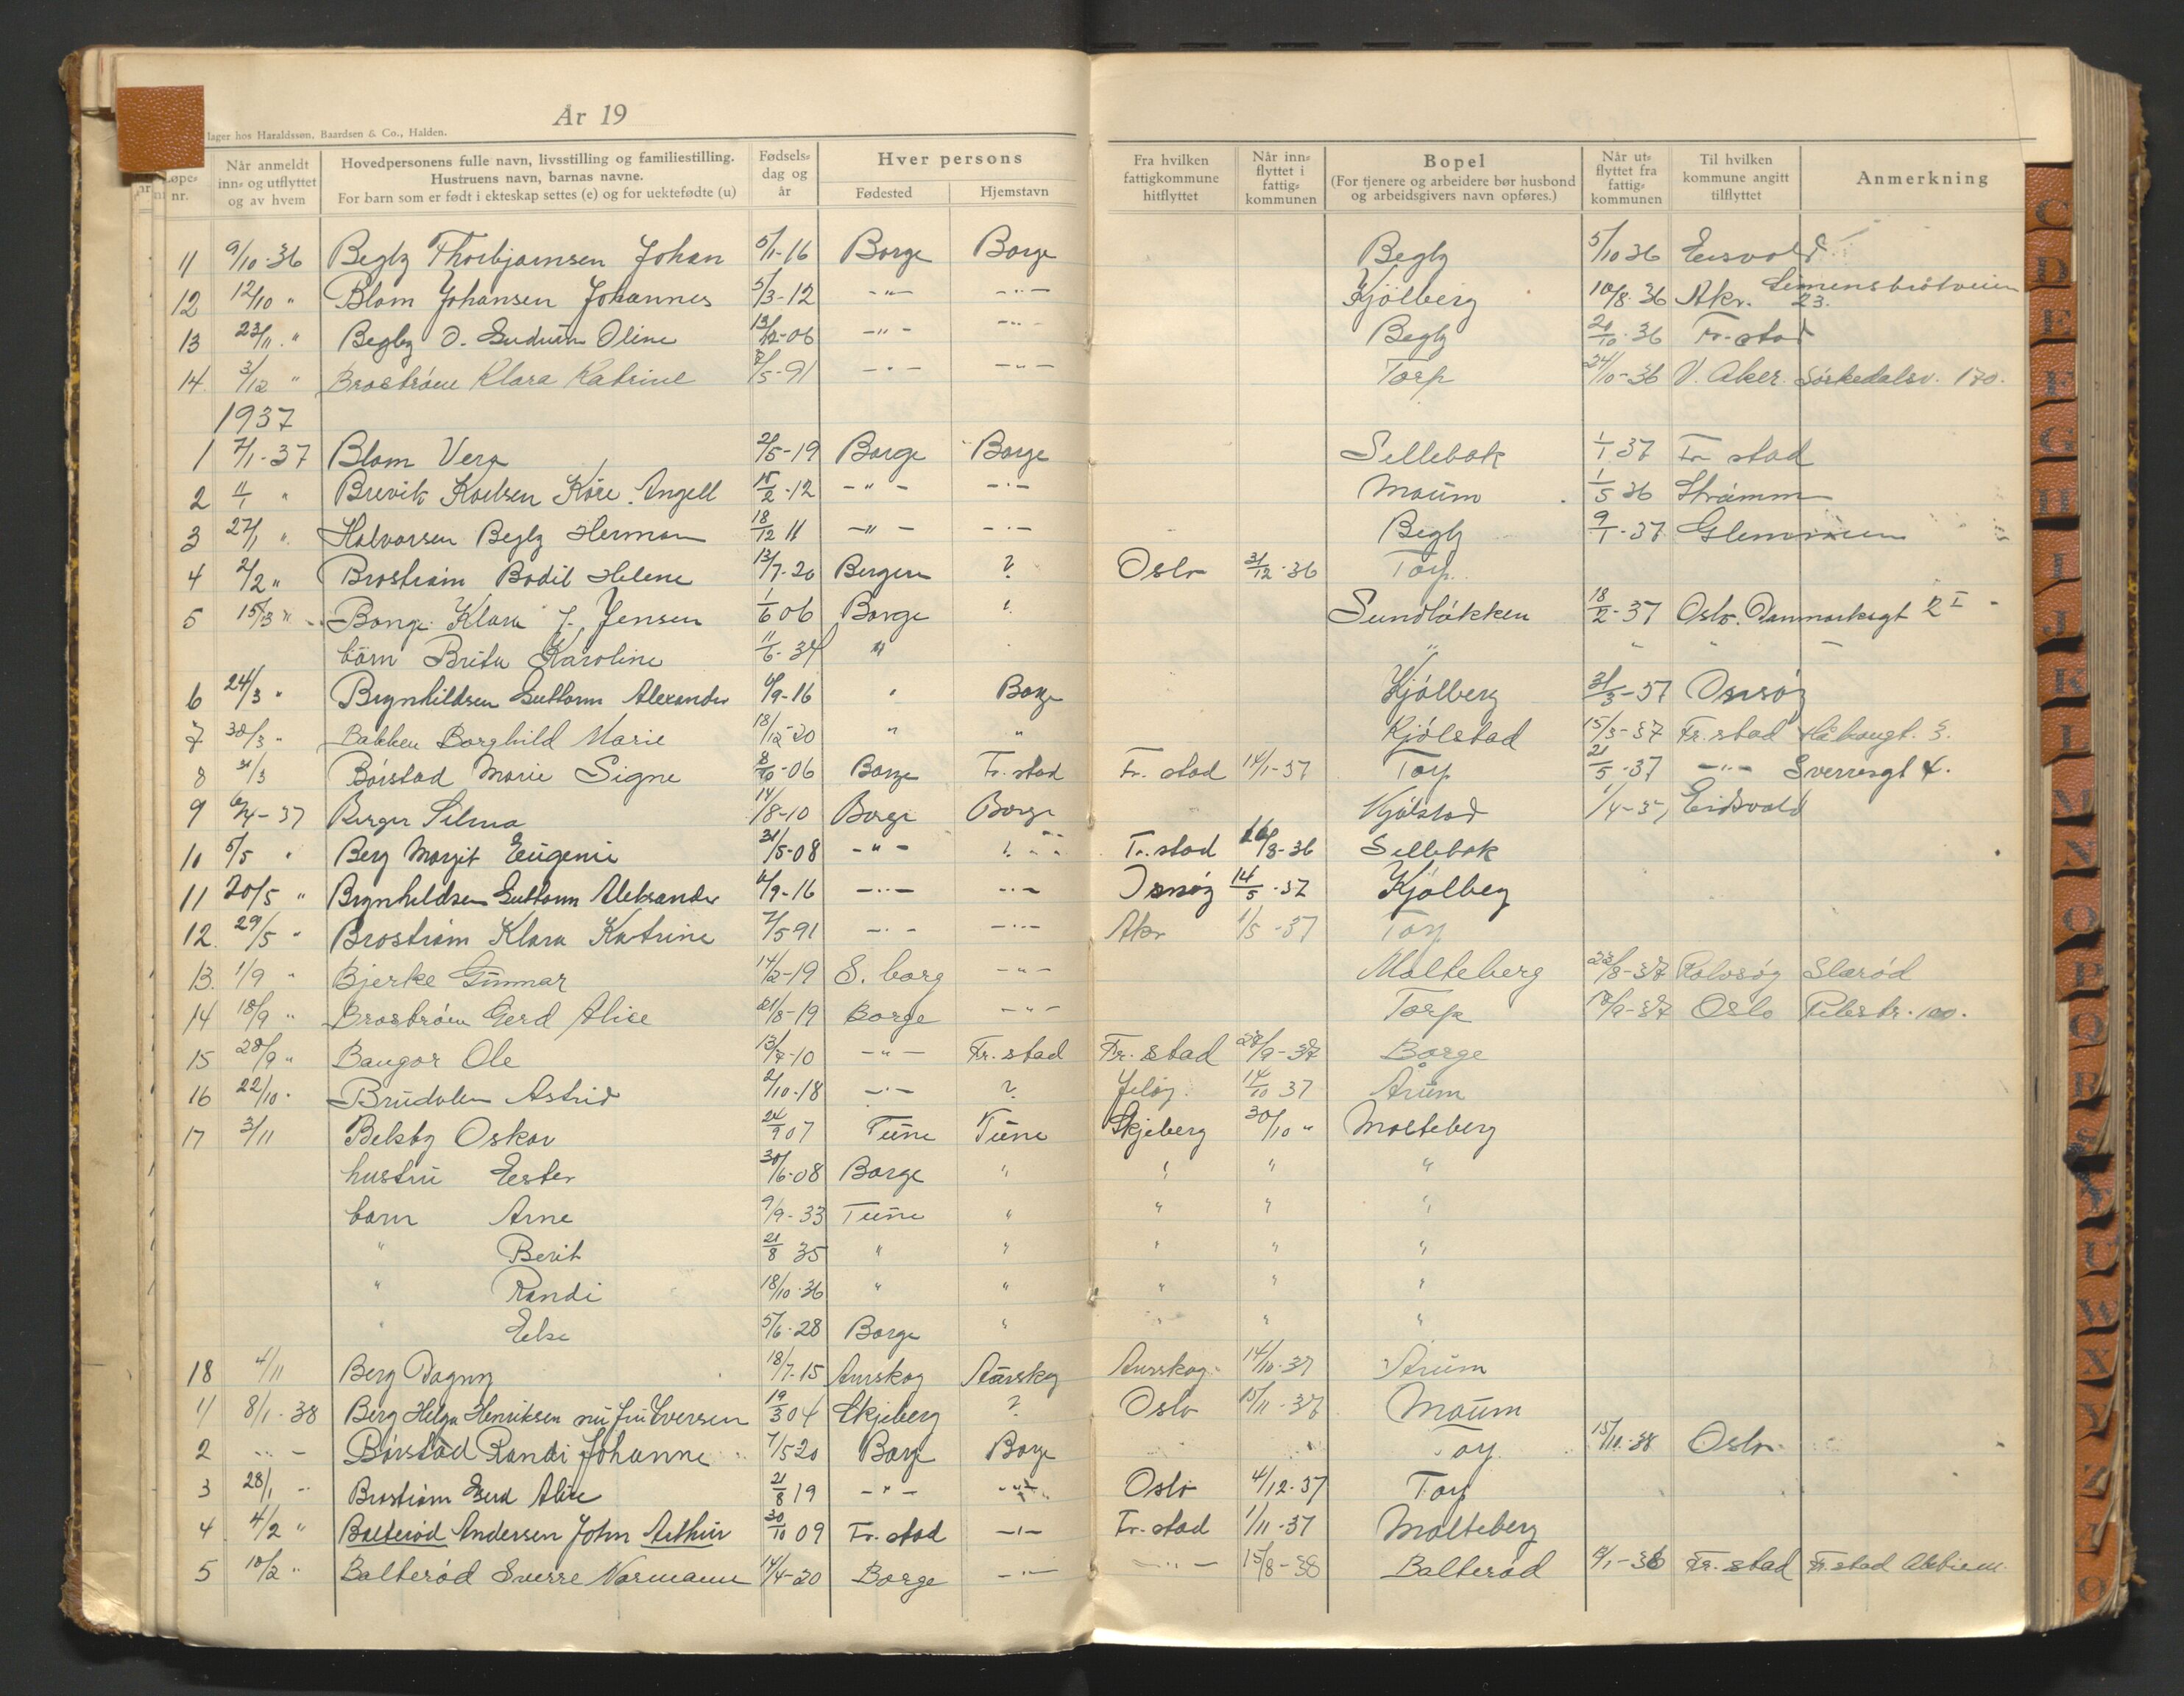 År 19
lager hos Haraldssøn, Baardsen & Co., Halden.
Løpe-nr. | Når anmeldt inn- og utflyttet og av hvem | Hovedpersonens fulle navn, livsstilling og familiestilling. Hustruens navn, barnas navne. For barn som er født i ekteskap settes (e) og for uektefødte (u) | Fødsels-dag og år | Hver persons Fødested | Hjemstavn | Fra hvilken fattigkommune hitflyttet | Når inn-flyttet i fattig-kommunen | Bopel (For tjenere og arbeidere bør husbond og arbeidsgivers navn opføres.) | Når ut-flyttet fra fattig-kommunen | Til hvilken kommune angitt tilflyttet | Anmerkning
11 9/10-36 Begby Thorbjørnsen Johan 5/1-16 Borge Borge Begby 5/10 36 Eisvold
12 12/10 " Blom Johansen Johannes 5/3-12 -"- -"- Kjölberg 10/8-36 Akr. 23.
13 23/11 " Begby O. Gudrun Oline 13/12-06 -"- -"- Begby 20/10-36 Fr.stad
14 3/12 " Broström Klara Katrine 7/5-91 -"- -"- Torp 24/10-36 V. Aker. Sörkedalsv. 170.
1937
1 7/1-37 Blom Vera 2/5-19 Borge Borge Sellebak 1/1 37 Fr stad
2 11/1 " Brevik Karlsen Kåre Angell 15/2-12 -"- -"- Moum 1/5 36 Strömm
3 27/1 " Halvorsen Begby Herman 18/12 11 -"- -"- Begby 9/1-37 Glemmen
4 2/2 " Broström Bodil Helene 13/7-20 Bergen ? Oslo 31/12-36 Torp
5 15/3 " Borge Klara J. Jensen 1/6 06 Borge ? Sundlökken 18/2-37 Oslo. Danmarksgt 2 I
börn Brita Karoline 11/6-34 " " " -
6 24/3 " Brynhildsen Guttorm Alexander 6/9-16 " Borge Kjölberg 31/3-37 Onsöy
7 30/3 " Bakken Borghild Marie 18/12-20 " " Kjölstad 15/3-37 Fr.stad Håkonsgt. 3.
8 31/3 Börstad Marie Signe 8/10-06 Borge Fr.stad Fr. stad 14/1-37 Torp 21/5-37 -"- Sverresgt 4.
9 6/4-37 Berger Selma 14/8-10 Borge Borge Kjölstad 1/4-37 Eidsvold
10 5/5 " Berg Margit Eugenie 31/5-08 -"- -"- Fr.stad 26/3-36 Sellebak
11 20/5 " Brynhildsen Guttorm Aleksander 6/9-16 -"- -"- Onsöy 14/5-37 Kjölberg
12 29/5 " Broström Klara Katrine 7/5 91 -"- -"- Akr 1/5-37 Torp
13. 1/9 " Bjerke Gunnar 14/2-19 S. borg -"- Molteberg 23/8-37 Rolvsöy Slæröd
14 18/9 " Broström Gerd Alice 21/8-19 Borge -"- Torp 10/9-37 Oslo Pilestr. 100.
15 28/9 " Baugor Ole 13/7-10 -"- Fr.stad Fr. stad 28/9-37 Borge
16 22/10 " Brudalen Astrid 2/10-18 -"- ? Jelöy 14/10 37 Årum
17 3/11 Belsby Oskar 24/9 07 Tune Tune Skjeberg 30/10 " Molteberg
hustru Ester 30/6-08 Borge " " " "
barn Arne 9/9-33 Tune " " " "
" Berit 21/8 35 " " " " "
" Randi 18/10-36 " " " " "
" Else 5/6-28 Borge " " " "
18 4/11 Berg Dagny 18/7-15 Aurskog Aurskog Aurskog 14/10-37 Årum
1/ 8/1-38 Berg Helga Henriksen nu fru Eversen 19/3 04 Skjeberg ? Oslo 15/11-37 Moum
2 -"- Börstad Randi Johanne 7/5 20 Borge Borge Torp 15/11-38 Oslo
3 28/1 " Broström Gerd Alice 21/8 19 -"- -"- Oslo 4/12-37 Torp
4 4/2 " Balteröd Andersen John Arthur 30/10 09 Fr.stad -"- Fr.stad 1/11-37 Molteberg
5 10/2 " Balteröd Sverre Normann 14/4-20 Borge -"- -"- 15/8-38 Balteröd 4/1-36 Fr.stad Fr.stad